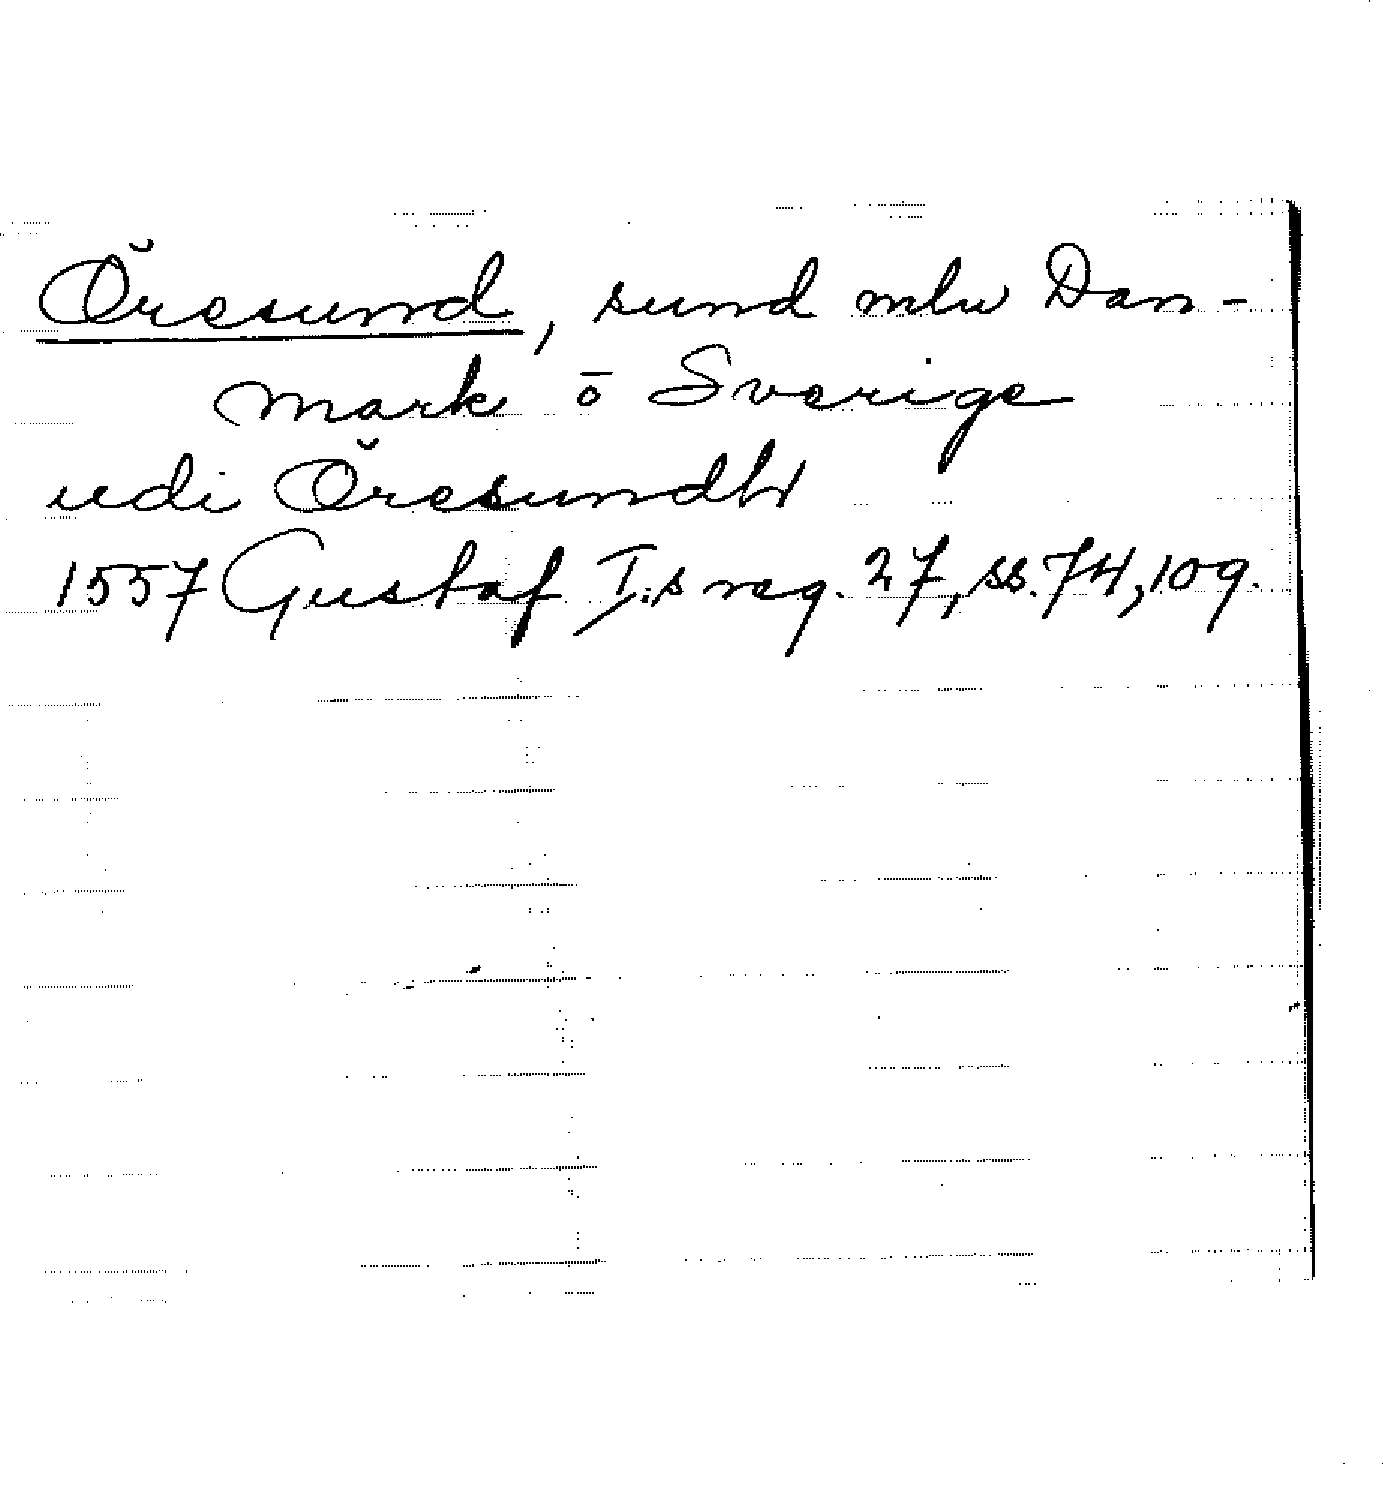 Öresund, sund mlw Dan-
mark ō Sverige
udi Öresundh
1557 Gustaf I:s reg. 27, ss. 74, 109.